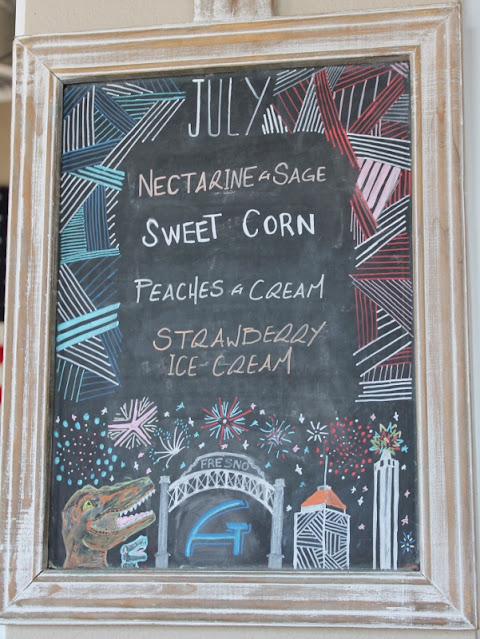 JULY
NECTARINE & SAGE
SWEET CORN
PEACHES & CREAM
STRAWBERRY
ICE-CREAM
FRESNO